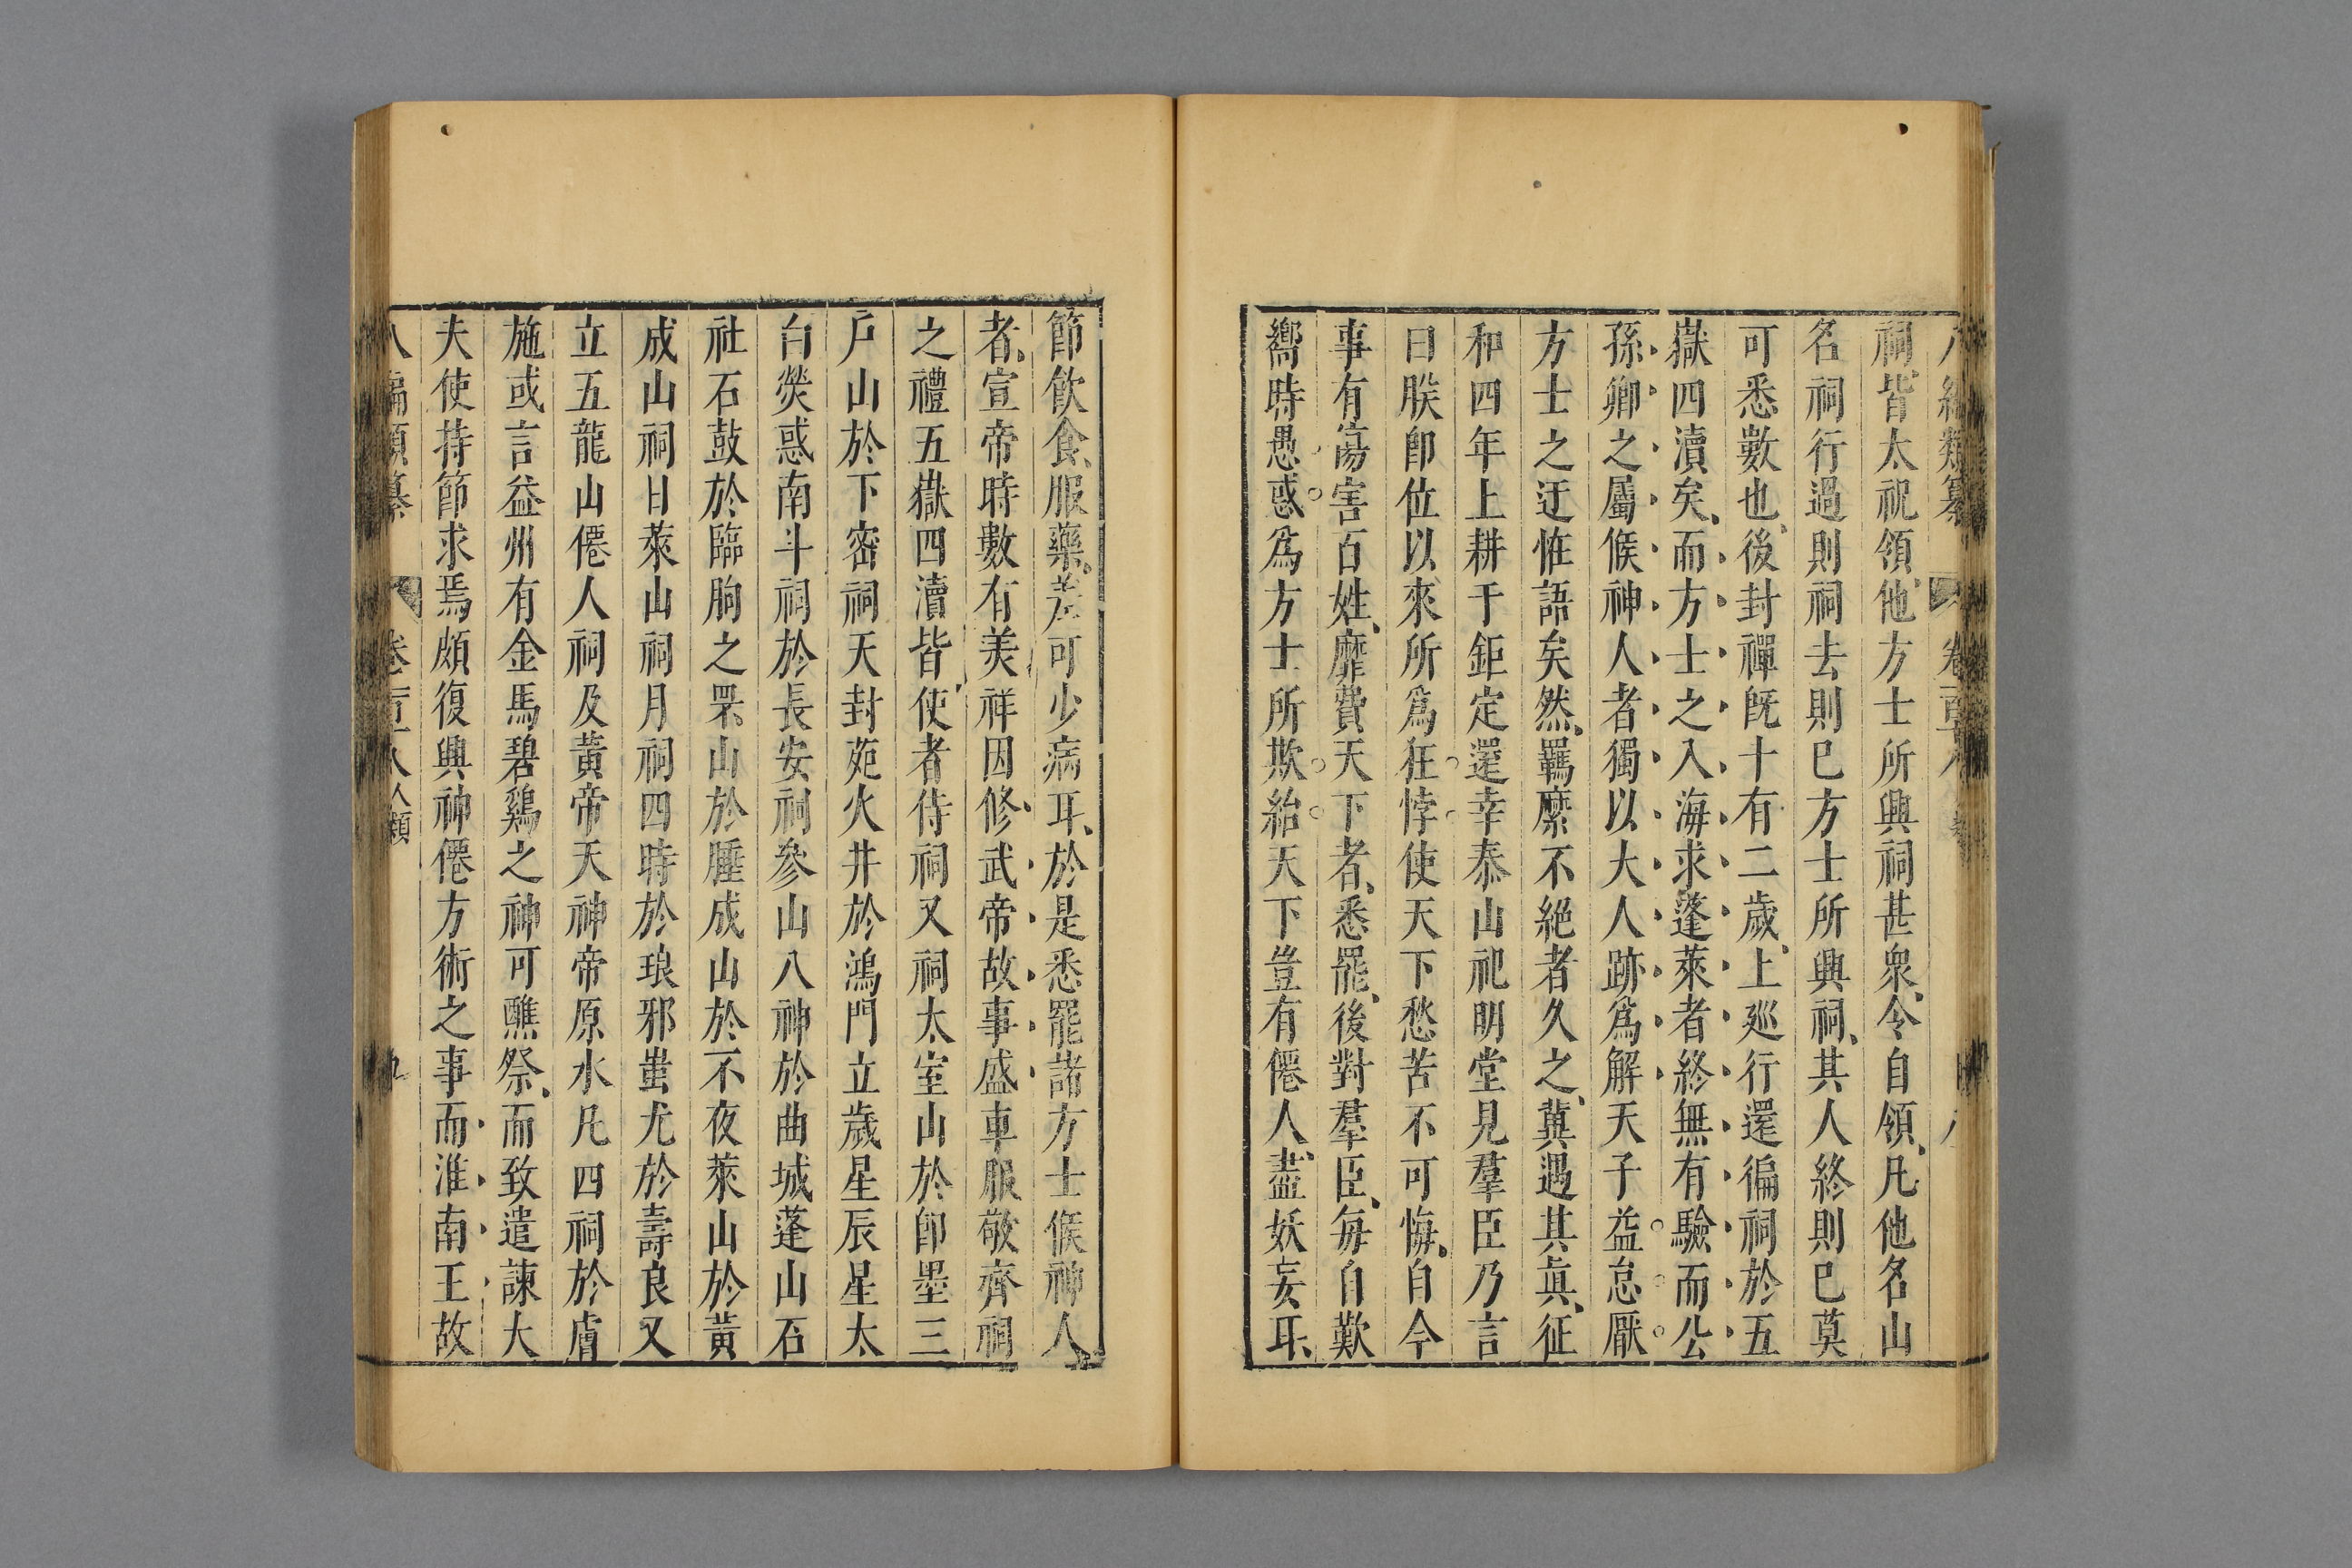 祠皆太祝領他方士所興祠甚衆令自領凡他名山
名祠行過則祠去則已方士所興祠其人終則已莫
可悉數也後封禪旣十有二歲上廵行還徧祠於五
嶽四瀆矣而方士之入海求蓬萊者終無有驗而公
孫卿之屬候神人者獨以大人跡爲解天子益怠厭
方士之迂恠語矣然羈縻不絕者久之冀遇其眞征
和四年上耕于鉅定還幸泰山祀明堂見羣臣乃言
曰朕卽位以來所爲狂悖使天下愁苦不可悔自今
事有傷害百姓靡費天下者悉罷後對羣臣每自歎
嚮時愚惑爲方士所欺紿天下豈有僊人盡妖妄耳
節飲食服藥差可少病耳於是悉罷諸方士候神人
者宣帝時數有美祥因修武帝故事盛車服敬齊祠
之禮五嶽四瀆皆使者侍祠又祠太室山於卽墨三
戶山於下密祠天封苑火井於鴻門立歲星辰星太
白熒惑南斗祠於長安祠參山八神於曲城蓬山石
社石鼓於臨朐之罘山於腄成山於不夜萊山於黃
成山祠日萊山祠月祠四時於琅邪蚩尤於壽良又
立五龍山僊人祠及黃帝天神帝原水凡四祠於膚
施或言益州有金馬碧鷄之神可醮祭而致遣諫大
夫使持節求焉頗復興神僊方術之事而淮南王故
八編類纂 卷二百十八 人類 九